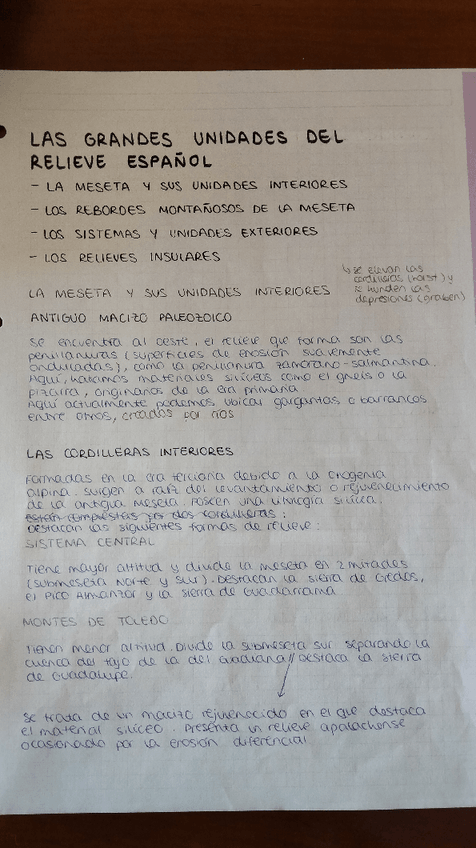 LAS GRANDES UNIDADES DEL
RELIEVE ESPAÑOL
- LA MESETA Y SUS UNIDADES INTERIORES
- LOS REBORDES MONTAÑOSOS DE LA MESETA
- LOS SISTEMAS Y UNIDADES EXTERIORES
- LOS RELIEVES INSULARES
↳ se elevan las
cordilleras (horst) y
se hunden las
depresiones (graben)
LA MESETA Y SUS UNIDADES INTERIORES
ANTIGUO MACIZO PALEOZOICO
Se encuentra al oeste, el relieve que forma son las
penillanuras (superficies de erosión suavemente
onduladas), como la penillanura zamorano-salmantina.
Aquí, hallamos materiales silíceos como el gneis o la
pizarra, originarios de la era primaria
Aquí actualmente podemos ubicar gargantas o barrancos
entre otros, creados por ríos
LAS CORDILLERAS INTERIORES
Formadas en la era terciaria debido a la orogenia
alpina. Surgen a raíz del levantamiento o rejuvenecimiento
de la antigua meseta. Poseen una litología silícea.
Están compuestas por dos cordilleras:
Destacan las siguientes formas de relieve:
SISTEMA CENTRAL
Tiene mayor altitud y divide la meseta en 2 mitades
(submeseta Norte y Sur). Destacan la sierra de Gredos,
el Pico Almanzor y la sierra de Guadarrama
MONTES DE TOLEDO
Tienen menor altitud. Divide la submeseta sur separando la
cuenca del tajo de la del Guadiana// Destaca la Sierra
de Guadalupe.
Se trata de un macizo rejuvenecido en el que destaca
el material silíceo. Presenta un relieve apalachense
ocasionado por la erosión diferencial